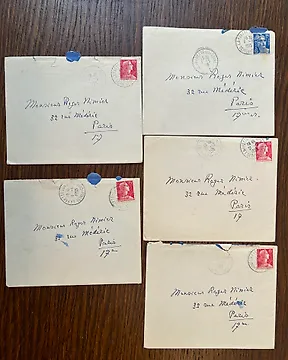 Monsieur Roger Nimier
32 rue Médéric
Paris
17
Monsieur Roger Nimier
32 rue Médéric
Paris
17e
Monsieur Roger Nimier
32 rue Médéric
Paris
17
Monsieur Roger Nimier
32 rue Médéric
Paris
17e
Monsieur Roger Nimier
32 rue Médéric
Paris
17e